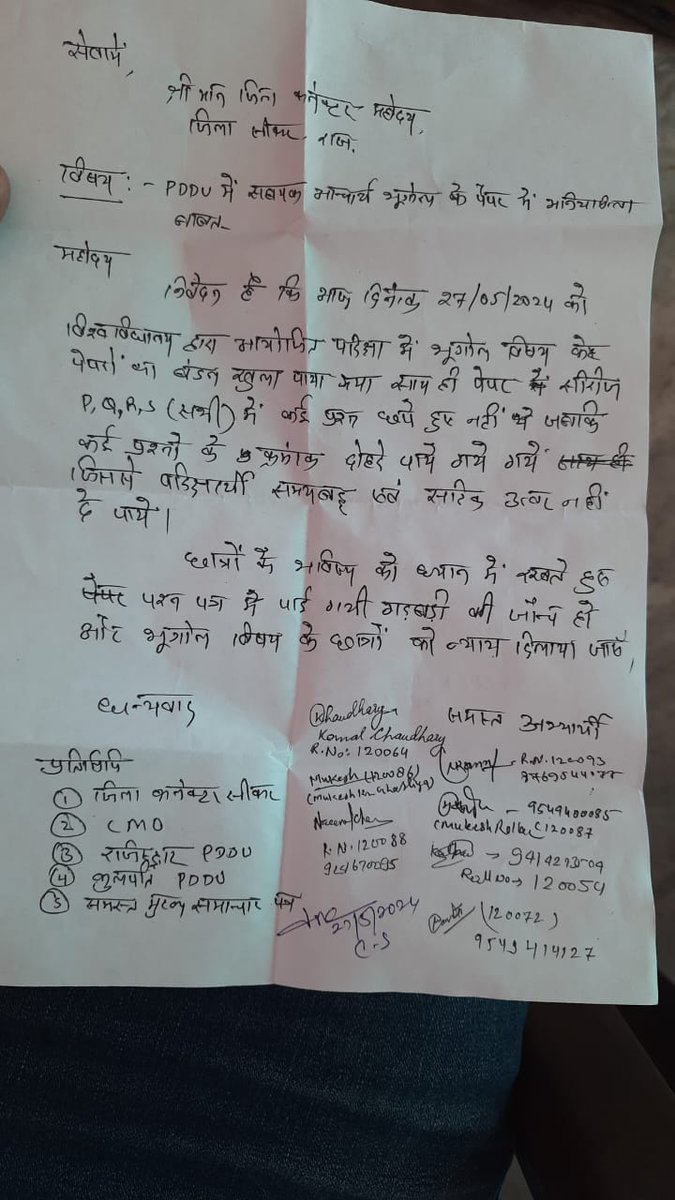 सेवामें,
श्री मान जिला कलेक्टर महोदय,
जिला सीकर, राज.
विषय :- PDDU में सहायक आचार्य भूगोल के पेपर में अनियमितता
बाबत
महोदय
निवेदन है कि आज दिनांक 27/05/2024 को
विश्वविद्यालय द्वारा आयोजित परिक्षा में भूगोल विषय के
पेपरों का बंडल खुला पाया गया साथ ही पेपर सीरीज
P, Q, R, S (सभी) में कई प्रश्न छपे हुए नहीं थे जबकि
कई प्रश्नों के क्रमांक दोहरे पाये गये गयें
जिससे परिक्षार्थी समयबद्ध एवं सटिक उत्तर नहीं
दे पाये।
छात्रों के भविष्य को ध्यान में रखते हुए
प्रश्न पत्र में पाई गयी गड़बड़ी की जाँच हो
और भूगोल विषय के छात्रों को न्याय दिलाया जाएँ,
धन्यवाद
समस्त अभ्यार्थी
Khaudhary
Komal Chaudhary
R.No: 120064
R.N. 120093
Mukesh (120086)
R.N. 120088
9549400085
(Mukesh 120087
Roll No → 120054
(120072)
9549414127
27/5/2024
प्रतिलिपि
① जिला कलेक्टर सीकर
② CMO
③ राजिस्ट्रार PDDU
④ कुलपति PDDU
⑤ समस्त मुख्य समाचार पत्र